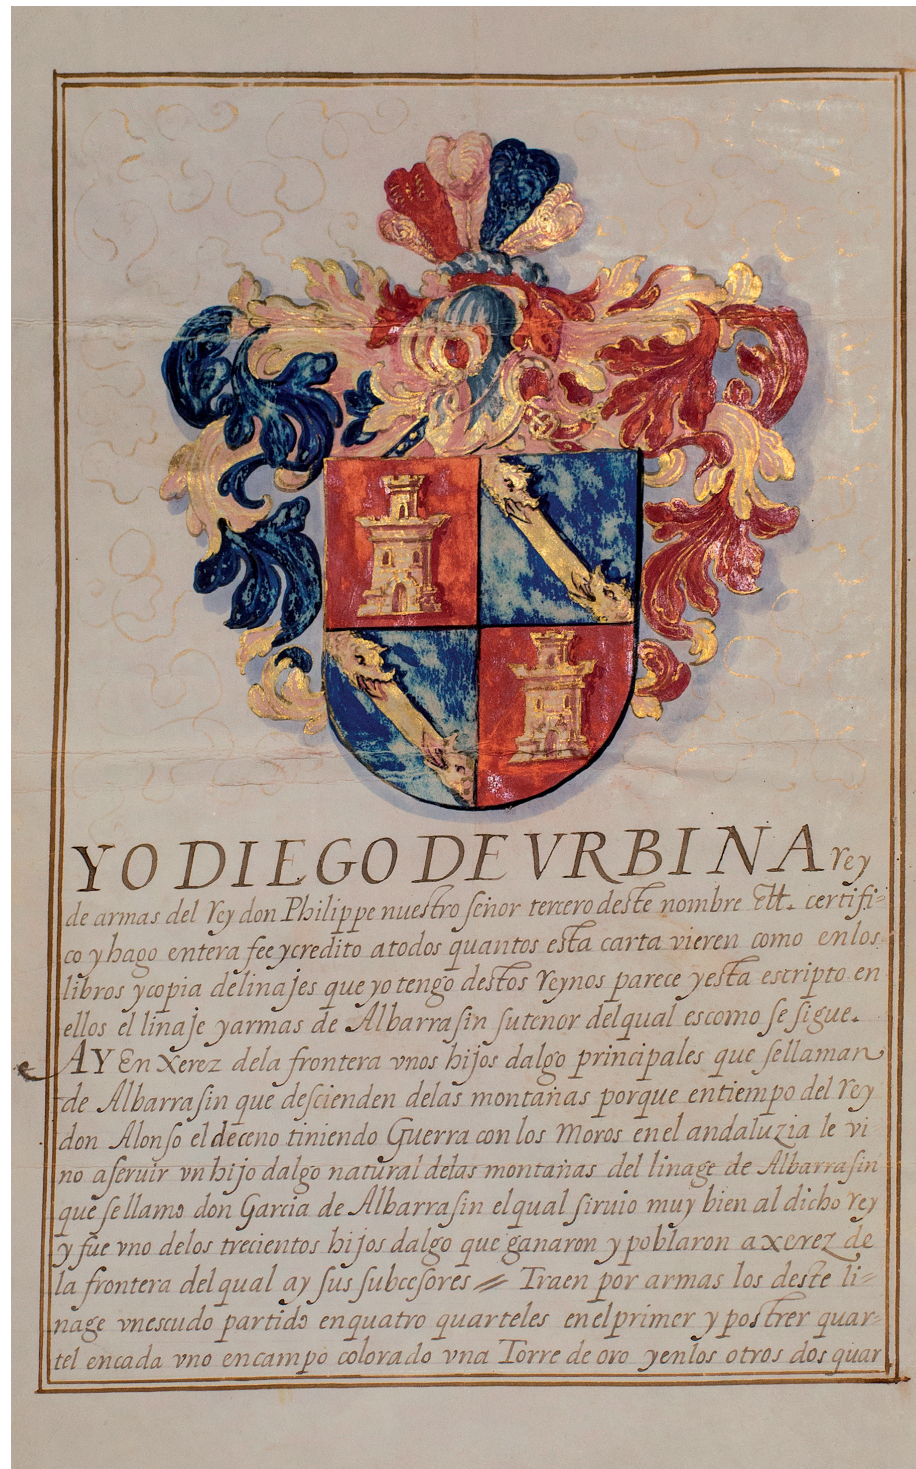 YO DIEGO DE VRBINA rey
de armas del rey don Philippe nuestro señor tercero deste nombre ett. certifi=
co y hago entera fee y credito a todos quantos esta carta vieren como enlos
libros y copia de linajes que yo tengo destos reynos parece y esta escripto en
ellos el linaje y armas de Albarrasin su tenor del qual es como se sigue.
AY En Xerez dela frontera vnos hijos dalgo principales que se llaman
de Albarrasin que descienden delas montañas porque en tiempo del rey
don Alonso el deceno tiniendo Guerra con los Moros en el andaluzia le vi
no a seruir vn hijo dalgo natural delas montañas del linage de Albarrasin
que se llamo don Garcia de Albarrasin el qual siruio muy bien al dicho rey
y fue vno delos trecientos hijos dalgo que ganaron y poblaron a xerez de
la frontera del qual ay sus subcesores // Traen por armas los deste li=
nage vn escudo partido en quatro quarteles en el primer y postrer quar=
tel en cada vno en campo colorado vna Torre de oro y en los otros dos quar